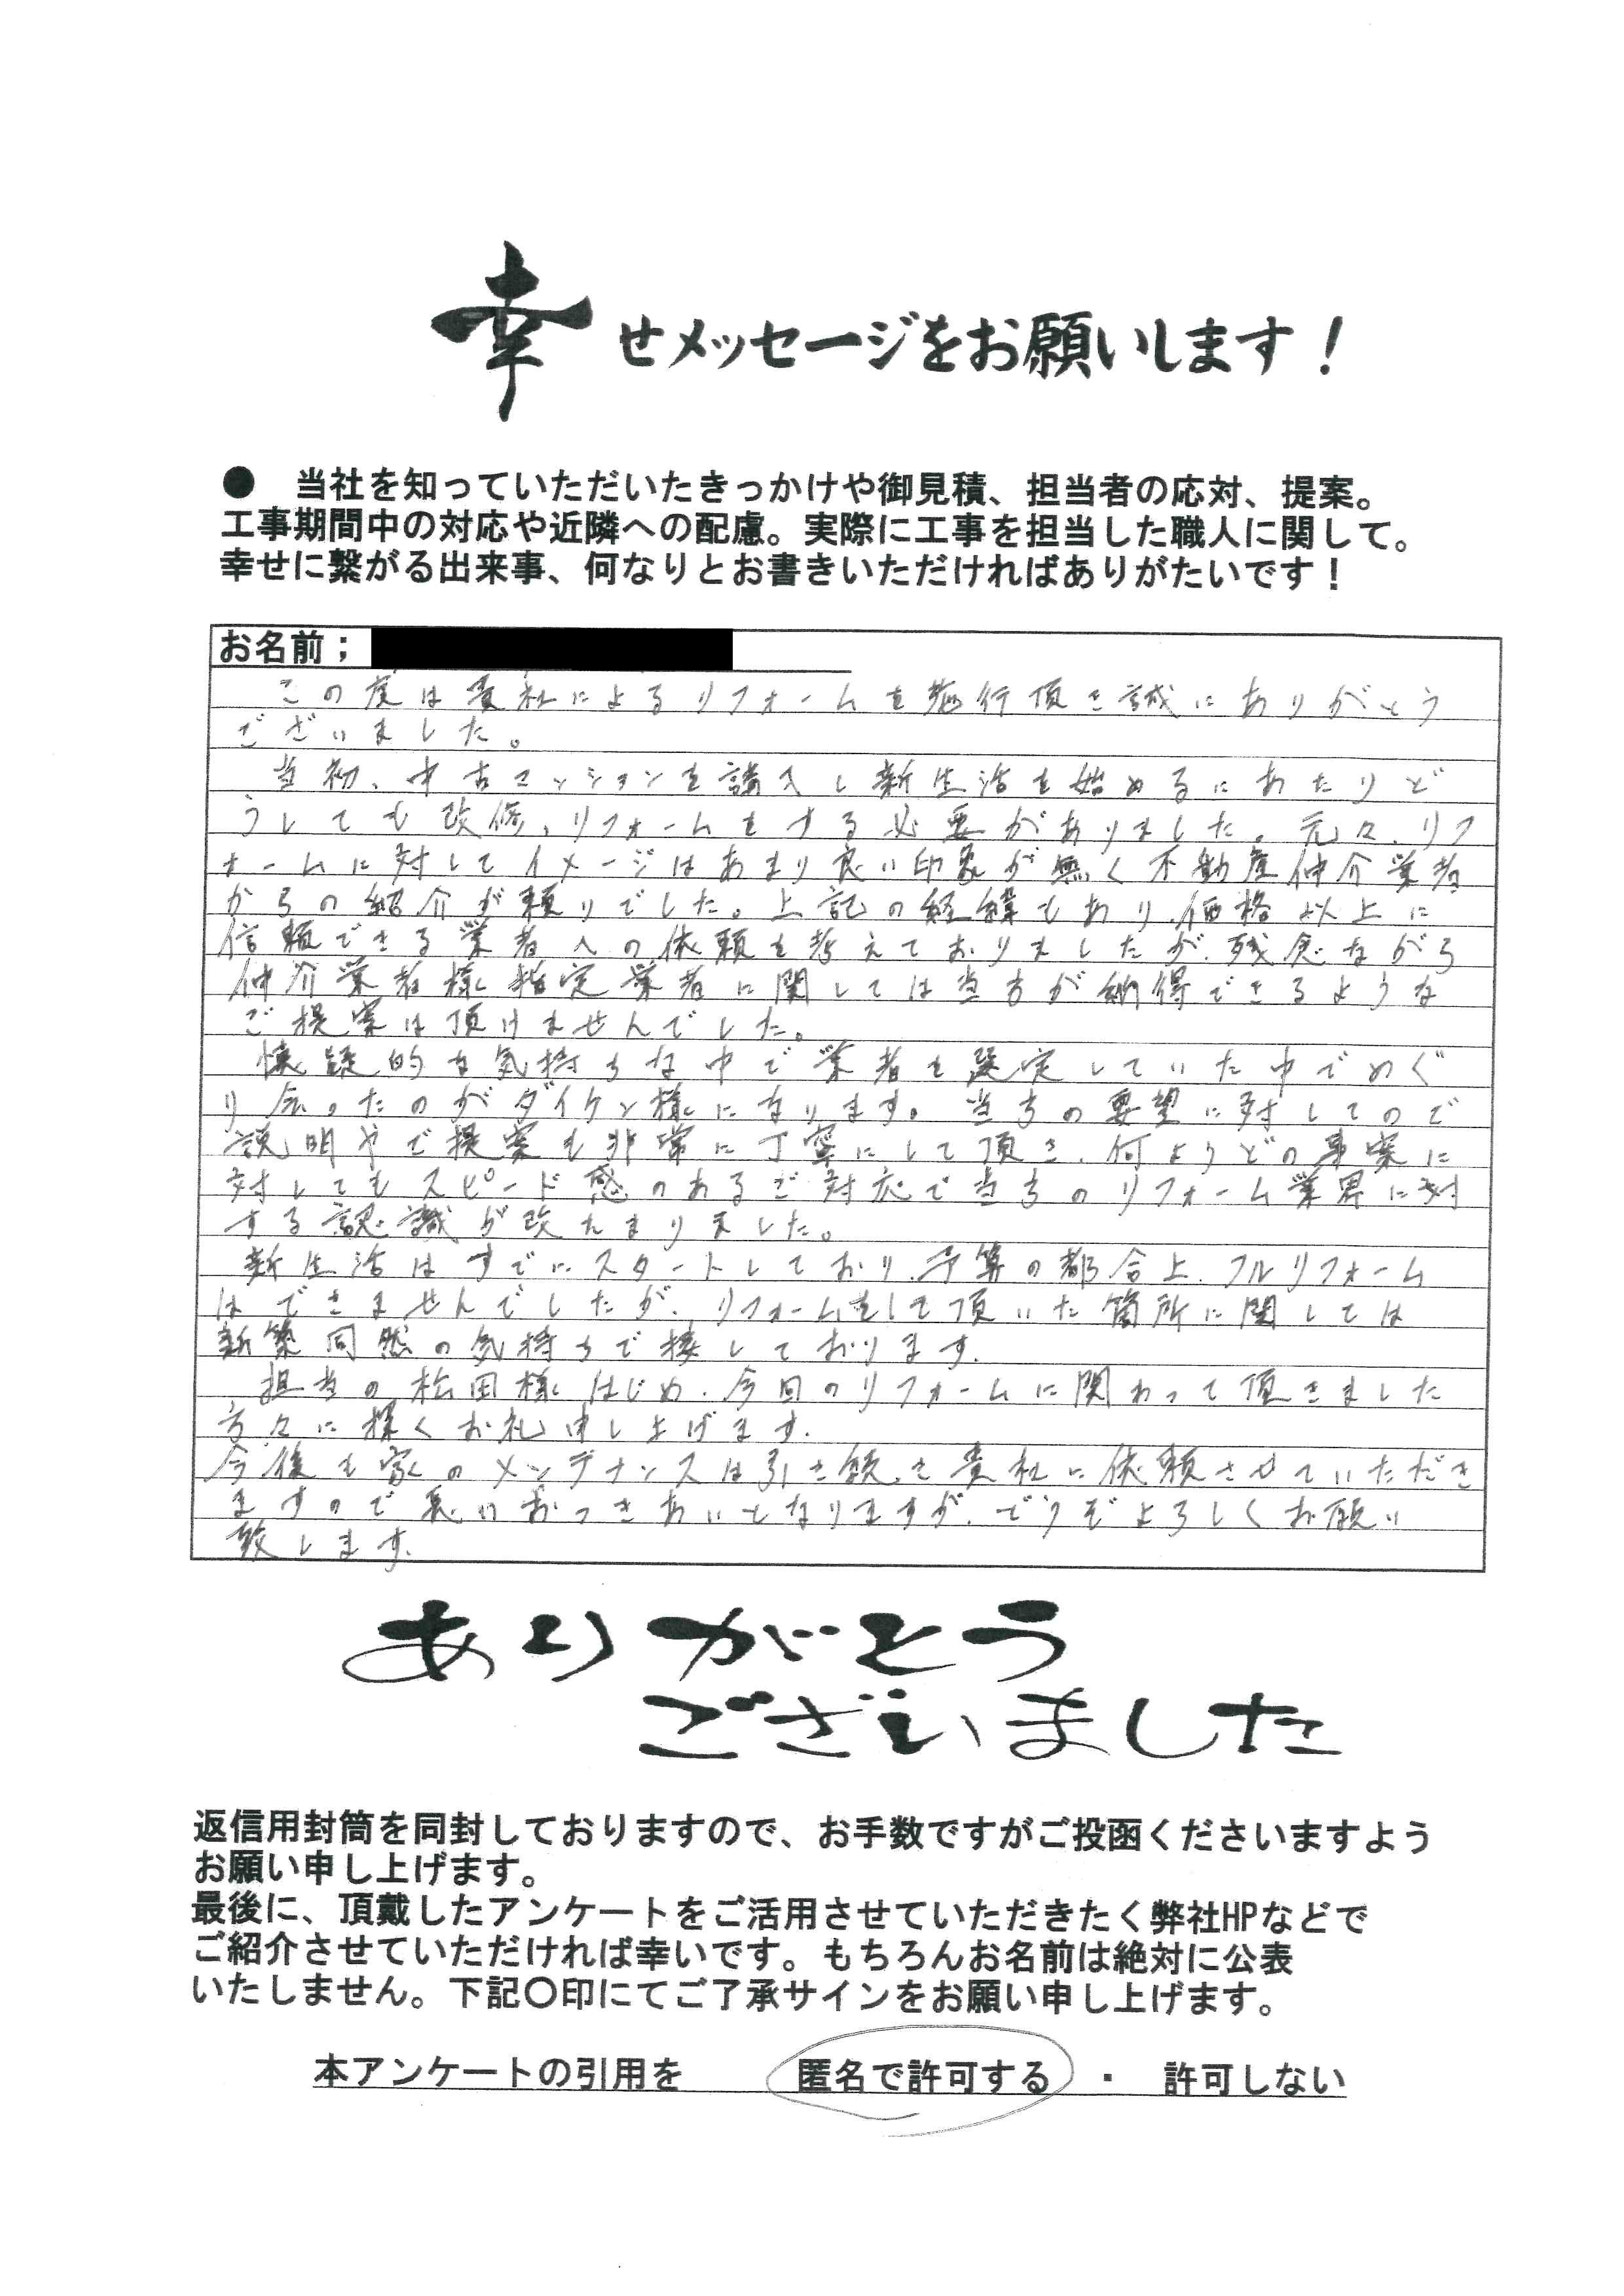 幸せメッセージをお願いします！
● 当社を知っていただいたきっかけや御見積、担当者の応対、提案。
工事期間中の対応や近隣への配慮。実際に工事を担当した職人に関して。
幸せに繋がる出来事、何なりとお書きいただければありがたいです！
お名前；
この度は貴社によるリフォームを施行頂き誠にありがとう
ございました。
当初、中古マンションを購入し新生活を始めるにあたりど
うしても改修、リフォームをする必要がありました。元々、リフ
ォームに対してイメージはあまり良い印象が無く不動産仲介業者
からの紹介が頼りでした。上記の経緯もあり、価格以上に
信頼できる業者への依頼を考えておりましたが、残念ながら
仲介業者様指定業者に関しては当方が納得できるような
ご提案は頂けませんでした。
懐疑的な気持ちな中で業者を選定していた中でめぐ
り会ったのがダイケン様になります。当方の要望に対してのご
説明やご提案も非常に丁寧にして頂き、何よりどの事案に
対してもスピード感のあるご対応で当方のリフォーム業界に対
する認識が改たまりました。
新生活はすでにスタートしており、予算の都合上、フルリフォーム
はできませんでしたが、リフォームをして頂いた箇所に関しては
新築同然の気持ちで接しております。
担当の松田様はじめ、今回のリフォームに関わって頂きました
方々に深くお礼申し上げます。
今後も家のメンテナンスは引き続き貴社に依頼させていただき
ますので長いおつきあいとなりますが、どうぞよろしくお願い
致します。
ありがとう
ございました
返信用封筒を同封しておりますので、お手数ですがご投函くださいますよう
お願い申し上げます。
最後に、頂戴したアンケートをご活用させていただきたく弊社HPなどで
ご紹介させていただければ幸いです。もちろんお名前は絶対に公表
いたしません。下記〇印にてご了承サインをお願い申し上げます。
本アンケートの引用を 匿名で許可する ・ 許可しない